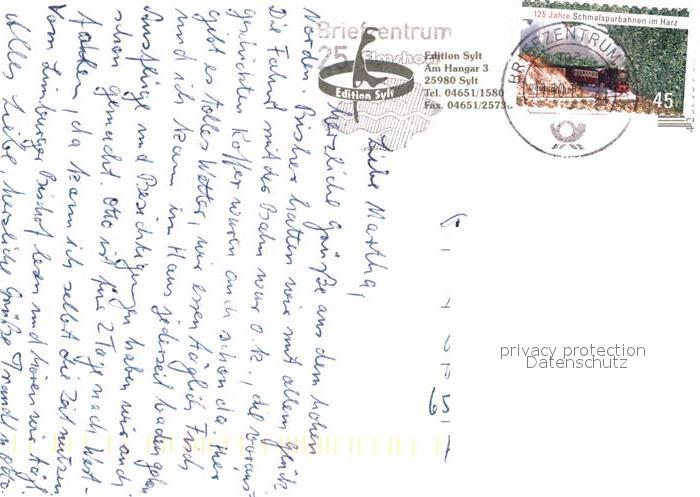 Briefzentrum
25 Elmshorn
Edition Sylt
Edition Sylt
Am Hangar 3
25980 Sylt
Tel. 04651/1580
Fax. 04651/2573
125 Jahre Schmalspurbahnen im Harz
BRIEFZENTRUM
45
Liebe Martha,
herzliche Grüße aus dem hohen
Norden. Bisher hatten wir mit allem Glück
Die Fahrt mit der Bahn war o.k., die voraus-
geschickten Koffer waren auch schon da. Hier
gibt es tolles Wetter, wir essen täglich Fisch
und ich kann im Haus jederzeit baden gehen
Ausflüge und Besichtigungen haben wir auch
schon gemacht. Otto ist für 2 Tage nach West-
da kann ich selbst die Zeit nutzen
Vom Limburger Bischof lesen und hören wir tägl.
Alles Liebe, herzliche Grüße Traudl u. Otto
65
privacy protection
Datenschutz